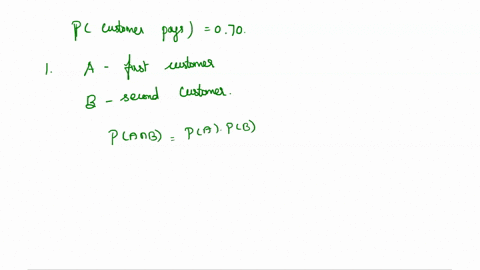 P( customer pays) = 0.70.
1. A - first customer
B - second customer.
P(A∩B) = P(A). P(B)